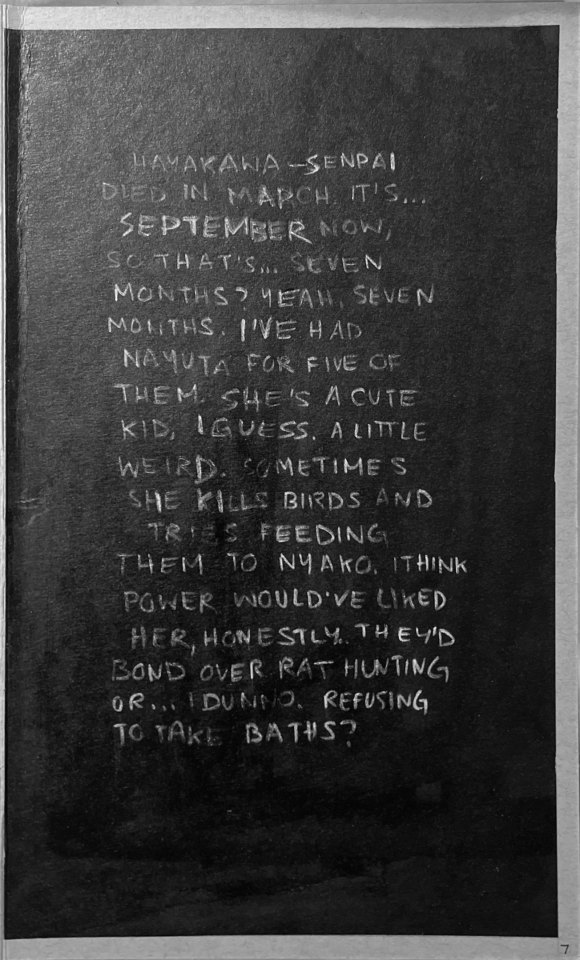 HAYAKAWA-SENPAI
DIED IN MARCH. IT'S...
SEPTEMBER NOW,
SO THAT'S... SEVEN
MONTHS? YEAH, SEVEN
MONTHS. I'VE HAD
NAYUTA FOR FIVE OF
THEM. SHE'S A CUTE
KID, I GUESS. A LITTLE
WEIRD. SOMETIMES
SHE KILLS BIRDS AND
TRIES FEEDING
THEM TO NYAKO. I THINK
POWER WOULD'VE LIKED
HER, HONESTLY. THEY'D
BOND OVER RAT HUNTING
OR... I DUNNO. REFUSING
TO TAKE BATHS?
7